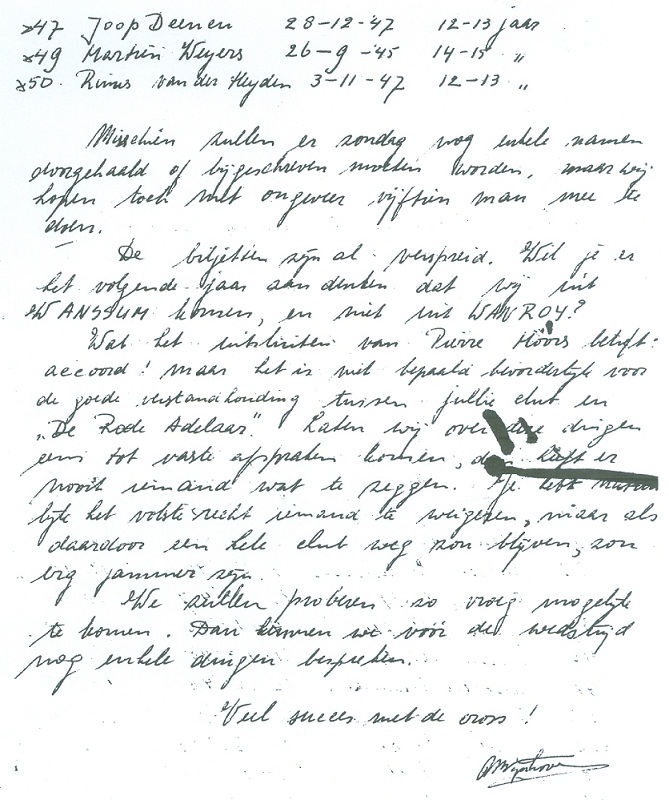 x47 Joop Deenen 28-12-'47 12-13 jaar
x49 Martien Weyers 26-9-'45 14-15 "
x50. Rinus van der Heyden 3-11-'47 12-13 "
Misschien zullen er zondag nog enkele namen
doorgehaald of bijgeschreven moeten worden, maar wij
hopen toch met ongeveer vijftien man mee te
doen.
De biljetten zijn al verspreid. Wil je er
het volgende jaar aan denken dat wij uit
WANSSUM komen, en niet uit WANROY?
Wat het uitsluiten van Pierre betreft:
accoord! maar het is niet bepaald bevorderlijk voor
de goede verstandhouding tussen jullie club en
"De Rode Adelaar". Laten wij over deze dingen
eens tot vaste afspraken komen, dan heeft er
nooit iemand wat te zeggen. Je hebt
het volste recht iemand te weigeren, maar als
daardoor een hele club weg zou blijven, zou
erg jammer zijn.
We zullen proberen zo vroeg mogelijk
te komen. Dan kunnen we vóór de wedstrijd
nog enkele dingen bespreken.
Veel succes met de cross!